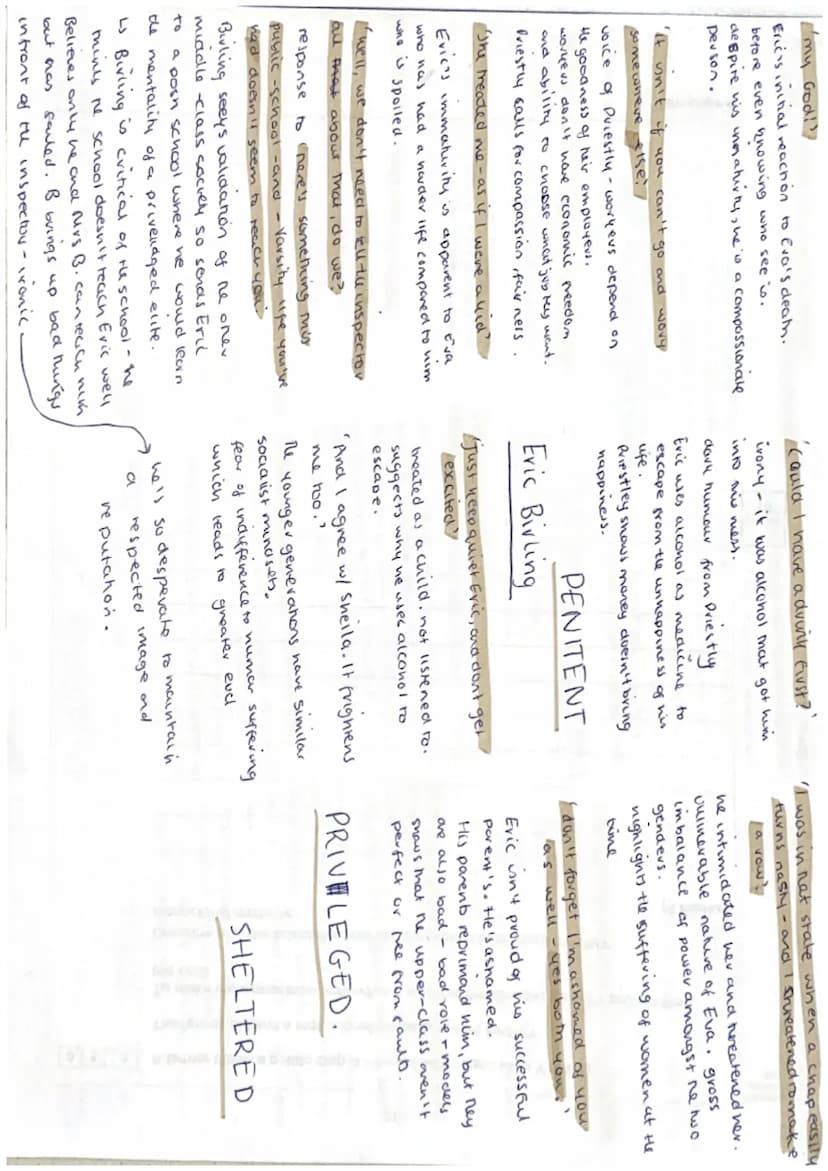 'my God!'
Eric's initial reaction to Eva's death.
before even knowing who see is.
despite his immaturity, he is a compassionate
person.
'it isn't if you can't go and work
somewhere else.'
voice of Priestly - workers depend on
the goodness of their employers.
workers don't have economic freedom
and ability to choose what job they want.
Priestly calls for compassion, fairness.
'She treated me - as if I were a kid'
Eric's immaturity is apparent to Eva
who has had a harder life compared to him
who is spoiled.
'well, we don't need to tell the inspector
all that about that, do we?'
response to 'there's something this
public-school-and-Varsity life you've
had doesn't seem to teach you'
Birling seeks validation of the other
middle-class society so sends Eric
to a posh school where he would learn
the mentality of a priveledged elite.
↳ Birling is critical of the school - he
thinks the school doesn't teach Eric well
Believes only he and Mrs B. can teach him
but has failed. B brings up bad things
infront of the inspector - ironic
'Could I have a drink first?'
irony - it was alcohol that got him
into this mess.
dark humour from Priestly
Eric uses alcohol as medicine to
escape from the unhappiness of his
life.
Priestley shows money doesn't bring
happiness.
PENITENT
Eric Birling
'Just keep quiet Eric, and don't get
excited'
treated as a child. not listened to.
suggests why he uses alcohol to
escape.
'And I agree w/ Sheila. It frightens
me too.'
The younger generations have similar
socialist mindsets.
fear of indifference to human suffering
which leads to greater evil
he's so desperate to maintain
a respected image and
reputation.
'I was in that state when a chap easily
turns nasty - and I threatened to make
a row'
he intimidated her and threatened her.
vulnerable nature of Eva. gross
imbalance of power amongst the two
genders.
highlights the suffering of women at the
time
'don't forget I'm ashamed of you
as well - yes both you.'
Eric isn't proud of his successful
parent's. He's ashamed.
His parents reprimand him, but they
are also bad - bad role-models
shows that the upper-class aren't
perfect or free from faults.
PRIVILEGED.
SHELTERED